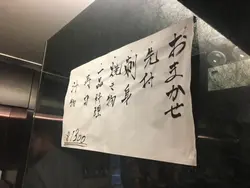 おまかせ
先付
刺身
焼き物
一品料理
寿司
汁物